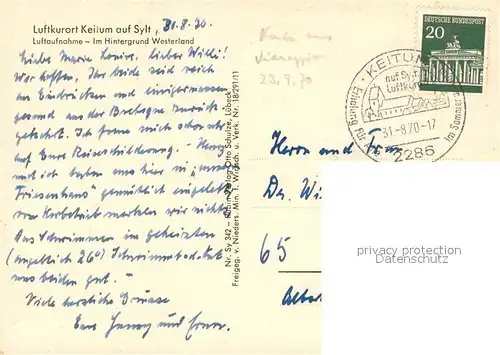 Luftkurort Keitum auf Sylt, 31.8.70.
Luftaufnahme – Im Hintergrund Westerland
Liebe Marie Louise, lieber Willi!
Wir hoffen, Ihr beide seid reich
an Eindrücken und einigermassen
gesund aus der Bretagne zurück-
gekehrt. Ich freue mich schon
auf Eure Reiseschilderung. – Henry
und ich haben uns hier in "
Friesenhaus" gemütlich eingelebt
vom Kurbetrieb merken wir nichts.
Das Schwimmen im geheizten
(angeblich 26°) Schwimmbad tut
uns beiden gut. –
Viele herzliche Grüsse
Eure Henry und Erna.
Karte aus
23.9.70
DEUTSCHE BUNDESPOST
20
KEITUM
auf Sylt
Luftkurort
Erholung
im Sommer
31-8.70-17
2286
Nr. Sy 342 Otto Schultze, Lübeck
Freigeg. v. Nieders. Min. f. Wirtsch. u. Verk. Nr. 18/29/11
Herrn und Frau
Dr. Wi
65
privacy protection
Datenschutz